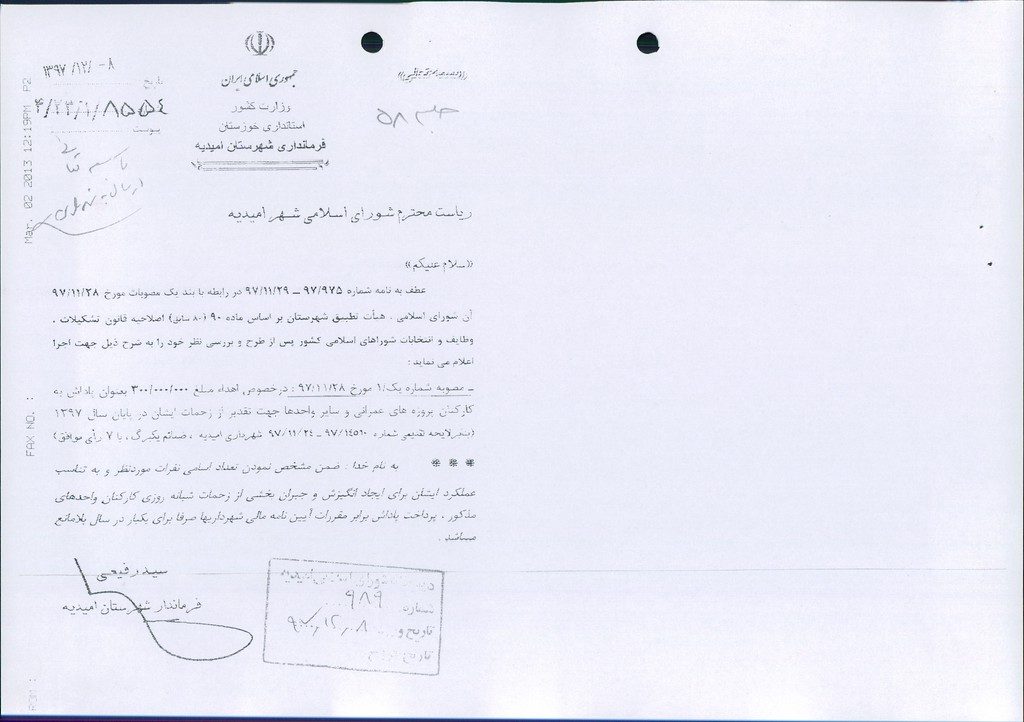 جمهوری اسلامی ایران
وزارت کشور
استانداری خوزستان
فرمانداری شهرستان امیدیه
تاریخ
۱۳۹۷/۱۲/۰۸
۸۵۵۴
پیوست
Mar. 02 2013 12:19PM P2
FAX NO. :
ریاست محترم شورای اسلامی شهر امیدیه
«سلام علیکم»
عطف به نامه شماره ۹۷/۹۷۵ – ۹۷/۱۱/۲۹ در رابطه با بند یک مصوبات مورخ ۹۷/۱۱/۲۸
آن شورای اسلامی . هیأت تطبیق شهرستان بر اساس ماده ۹۰ (۸۰ سابق) اصلاحیه قانون تشکیلات ،
وظایف و انتخابات شوراهای اسلامی کشور پس از طرح و بررسی نظر خود را به شرح ذیل جهت اجرا
اعلام می نماید :
ـ مصوبه شماره یک/۱ مورخ ۹۷/۱۱/۲۸ : درخصوص اهداء مبلغ ۳۰۰/۰۰۰/۰۰۰ بعنوان پاداش به
کارکنان پروژه های عمرانی و سایر واحدها جهت تقدیر از زحمات ایشان در پایان سال ۱۳۹۷
شماره ۹۷/۱۴۵۱۰ – ۹۷/۱۱/۲۴ شهرداری امیدیه ، ضمائم یکبرگ ، با ۷ رأی موافق)
* * * به نام خدا : ضمن مشخص نمودن تعداد اسامی نفرات موردنظر و به تناسب
عملکرد ایشان برای ایجاد انگیزش و جبران بخشی از زحمات شبانه روزی کارکنان واحدهای
مذکور ، پرداخت پاداش برابر مقررات آیین نامه مالی شهرداریها صرفا برای یکبار در سال بلامانع
میباشد .
سیدرفیعی
فرماندار شهرستان امیدیه
شورای اسلامی امیدیه
شماره ۹۸۹
تاریخ